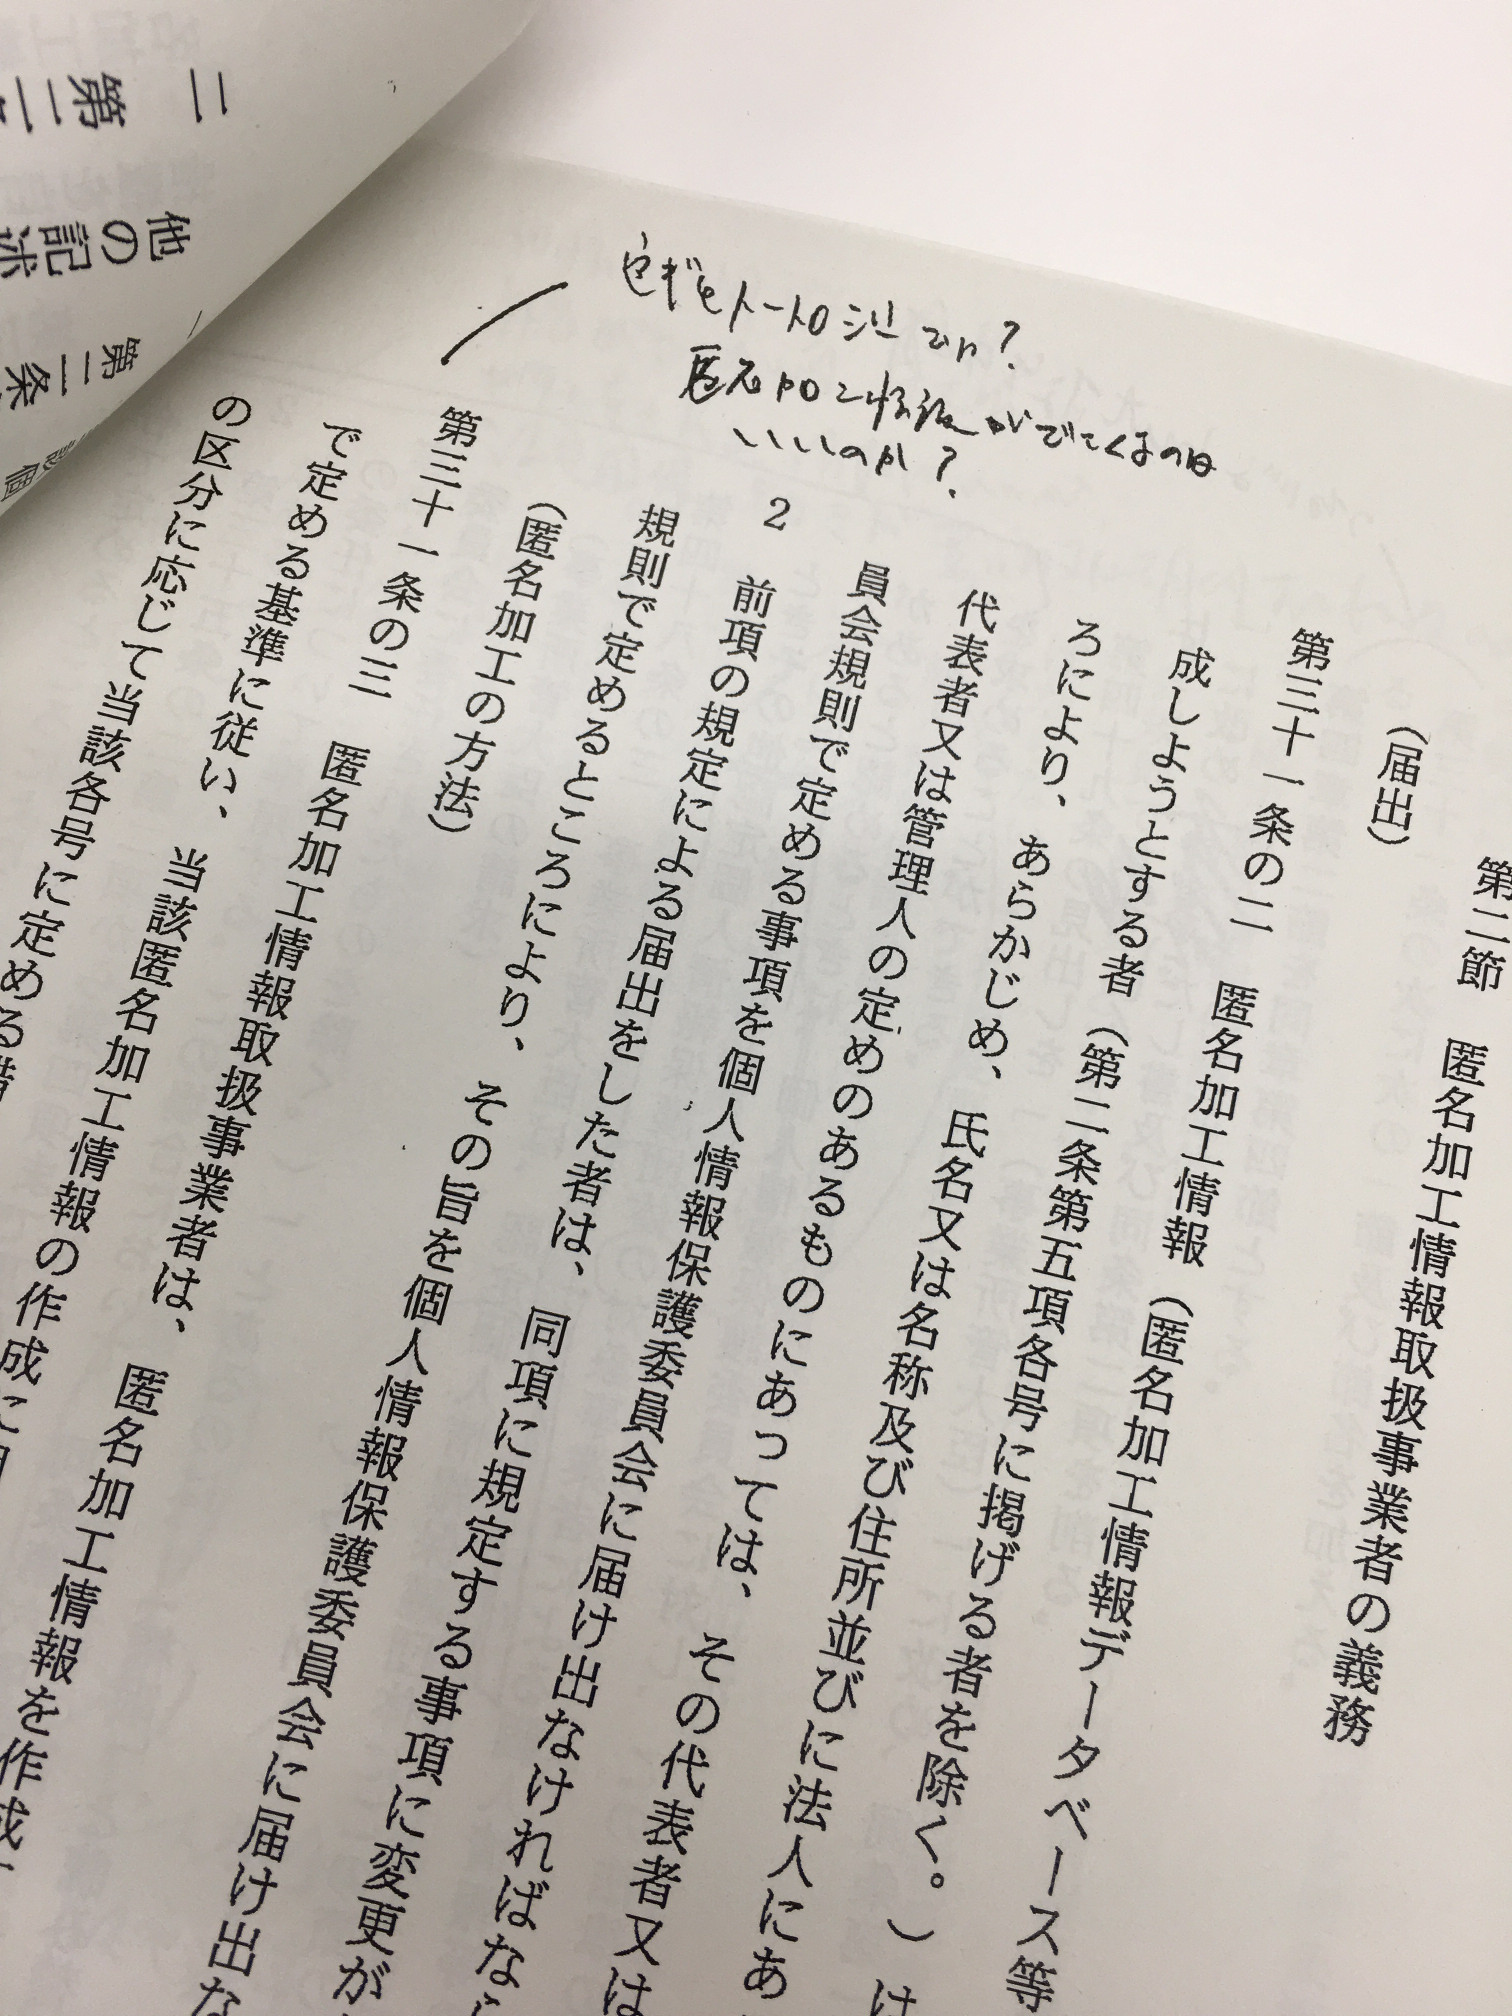 定ギもトートロジーでは？
匿名加工情報がでてくるのは
いいのか？
第二節　匿名加工情報取扱事業者の義務
（届出）
第三十一条の二　匿名加工情報（匿名加工情報データベース等
成しようとする者（第二条第五項各号に掲げる者を除く。）は
ろにより、あらかじめ、氏名又は名称及び住所並びに法人にあ
代表者又は管理人の定めのあるものにあっては、その代表者又は
員会規則で定める事項を個人情報保護委員会に届け出なければなら
2　前項の規定による届出をした者は、同項に規定する事項に変更が
規則で定めるところにより、その旨を個人情報保護委員会に届け出な
（匿名加工の方法）
第三十一条の三　匿名加工情報取扱事業者は、匿名加工情報を作成
で定める基準に従い、当該匿名加工情報の作成に
の区分に応じて当該各号に定める措
二　第二
他の記述
一　第二条